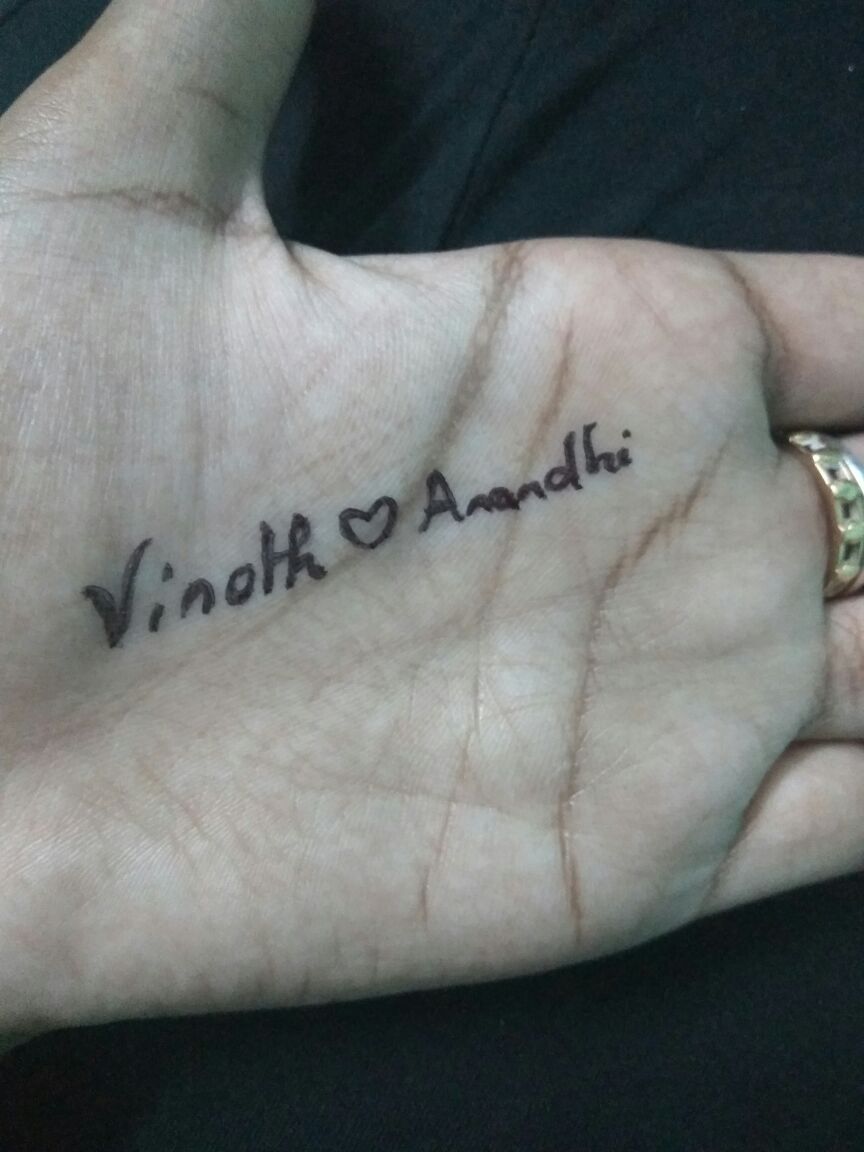 Vinoth ♡ Anandhi